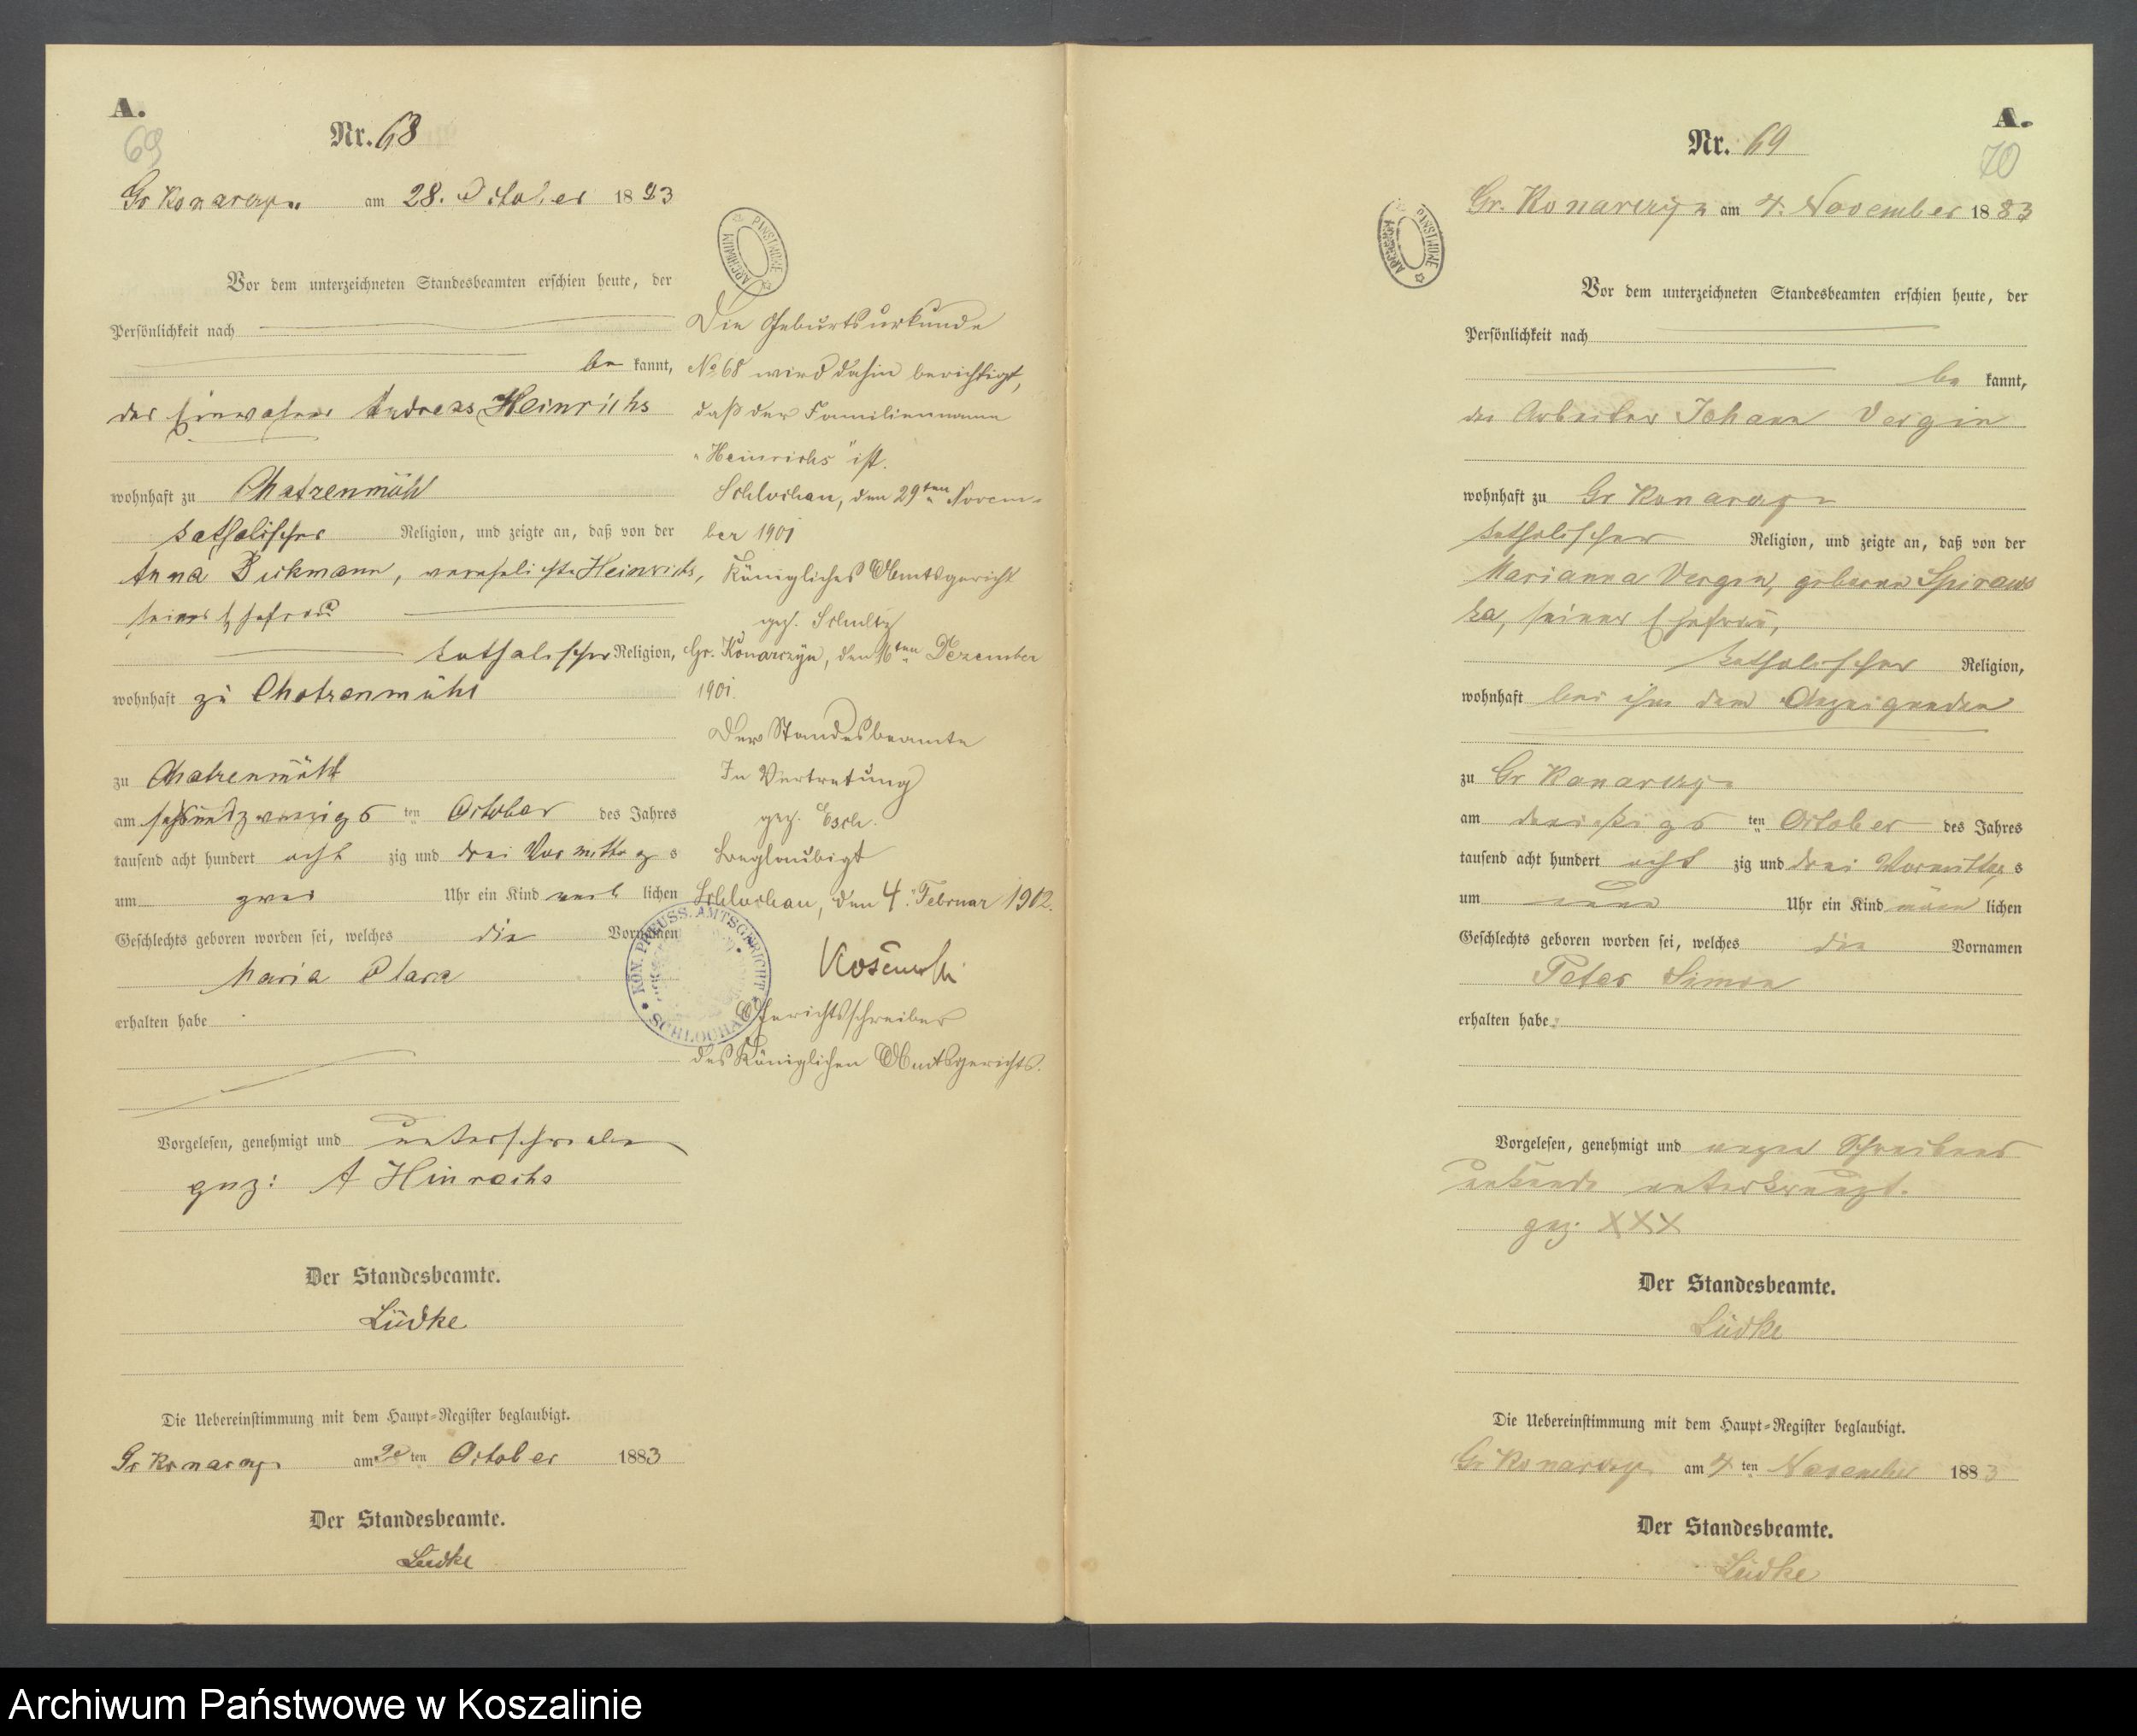 A.
69
Nr. 68
Gr Konarczyn am 28. October 1883
Vor dem unterzeichneten Standesbeamten erschien heute, der
Persönlichkeit nach
be kannt,
der Einwohner Andreas Heinrichs
wohnhaft zu Chotzenmühl
katholischer Religion, und zeigte an, daß von der
Anna Birkmann, verehelichte Heinrichs,
seiner Ehefrau
katholischer Religion,
wohnhaft zu Chotzenmühl
zu Chotzenmühl
am sechsundzwanzigs ten October des Jahres
tausend acht hundert acht zig und drei Vormittag s
um zwei Uhr ein Kind weib lichen
Geschlechts geboren worden sei, welches die Vornamen
Maria Clara
erhalten habe
Vorgelesen, genehmigt und unterschrieben
gez: A Hinrichs
Der Standesbeamte.
Lüdke
Die Uebereinstimmung mit dem Haupt-Register beglaubigt.
Gr Konarczyn am 28 ten October 1883
Der Standesbeamte.
Lüdke
ARCHIWUM PAŃSTWOWE
Die Geburtsurkunde
No 68 wird dahin berichtigt,
daß der Familienname
"Heinrichs" ist.
Schlochau, den 29ten Novem-
ber 1901
Königliches Amtsgericht
gez. Schultz
Gr. Konarczyn, den 16ten Dezember
1901.
Der Standesbeamte
In Vertretung
gez. Esch.
Beglaubigt
Schlochau, den 4. Februar 1902.
KÖN. PREUSS. AMTSGERICHT SCHLOCHAU
Gerichtsschreiber
des Königlichen Amtsgerichts.
A.
70
Nr. 69
Gr. Konarczyn am 4. November 1883
ARCHIWUM PAŃSTWOWE
Vor dem unterzeichneten Standesbeamten erschien heute, der
Persönlichkeit nach
be kannt,
der Arbeiter Johann Vergin
wohnhaft zu Gr Konarczyn
katholischer Religion, und zeigte an, daß von der
Marianna Vergin, geborene Spiraws
ka, seiner Ehefrau,
katholischer Religion,
wohnhaft bei ihm dem Anzeigenden
zu Gr Konarczyn
am dreißigs ten October des Jahres
tausend acht hundert acht zig und drei Vormittag s
um neun Uhr ein Kind männ lichen
Geschlechts geboren worden sei, welches die Vornamen
Peter Simon
erhalten habe
Vorgelesen, genehmigt und wegen Schreibens
unkunde unterkreuzt.
gez. XXX
Der Standesbeamte.
Lüdke
Die Uebereinstimmung mit dem Haupt-Register beglaubigt.
Gr Konarczyn am 4 ten November 1883
Der Standesbeamte.
Lüdke
Archiwum Państwowe w Koszalinie